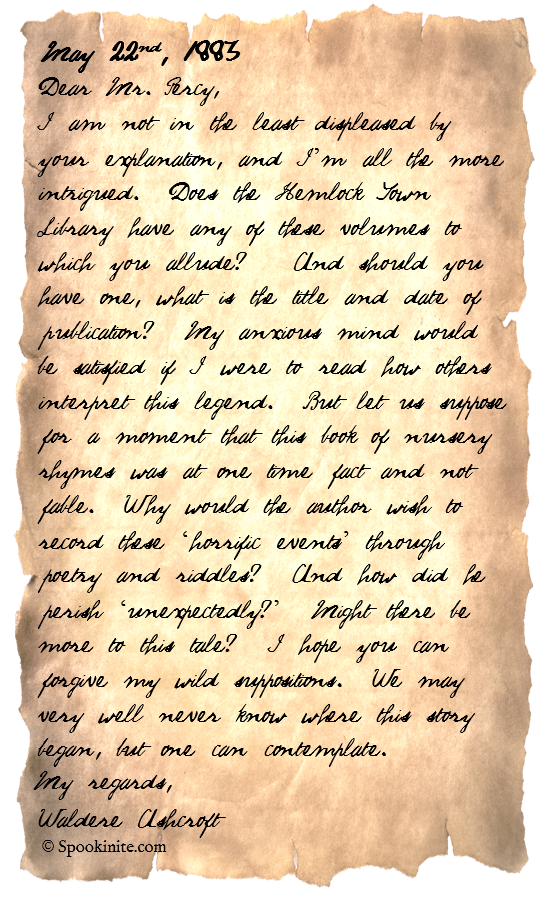 May 22nd, 1883
Dear Mr. Percy,
I am not in the least displeased by
your explanation, and I'm all the more
intrigued. Does the Hemlock Town
Library have any of these volumes to
which you allude? And should you
have one, what is the title and date of
publication? My anxious mind would
be satisfied if I were to read how others
interpret this legend. But let us suppose
for a moment that this book of nursery
rhymes was at one time fact and not
fable. Why would the author wish to
record these 'horrific events' through
poetry and riddles? And how did he
perish 'unexpectedly?' Might there be
more to this tale? I hope you can
forgive my wild suppositions. We may
very well never know where this story
began, but one can contemplate.
My regards,
Waldere Ashcroft
© Spookinite.com